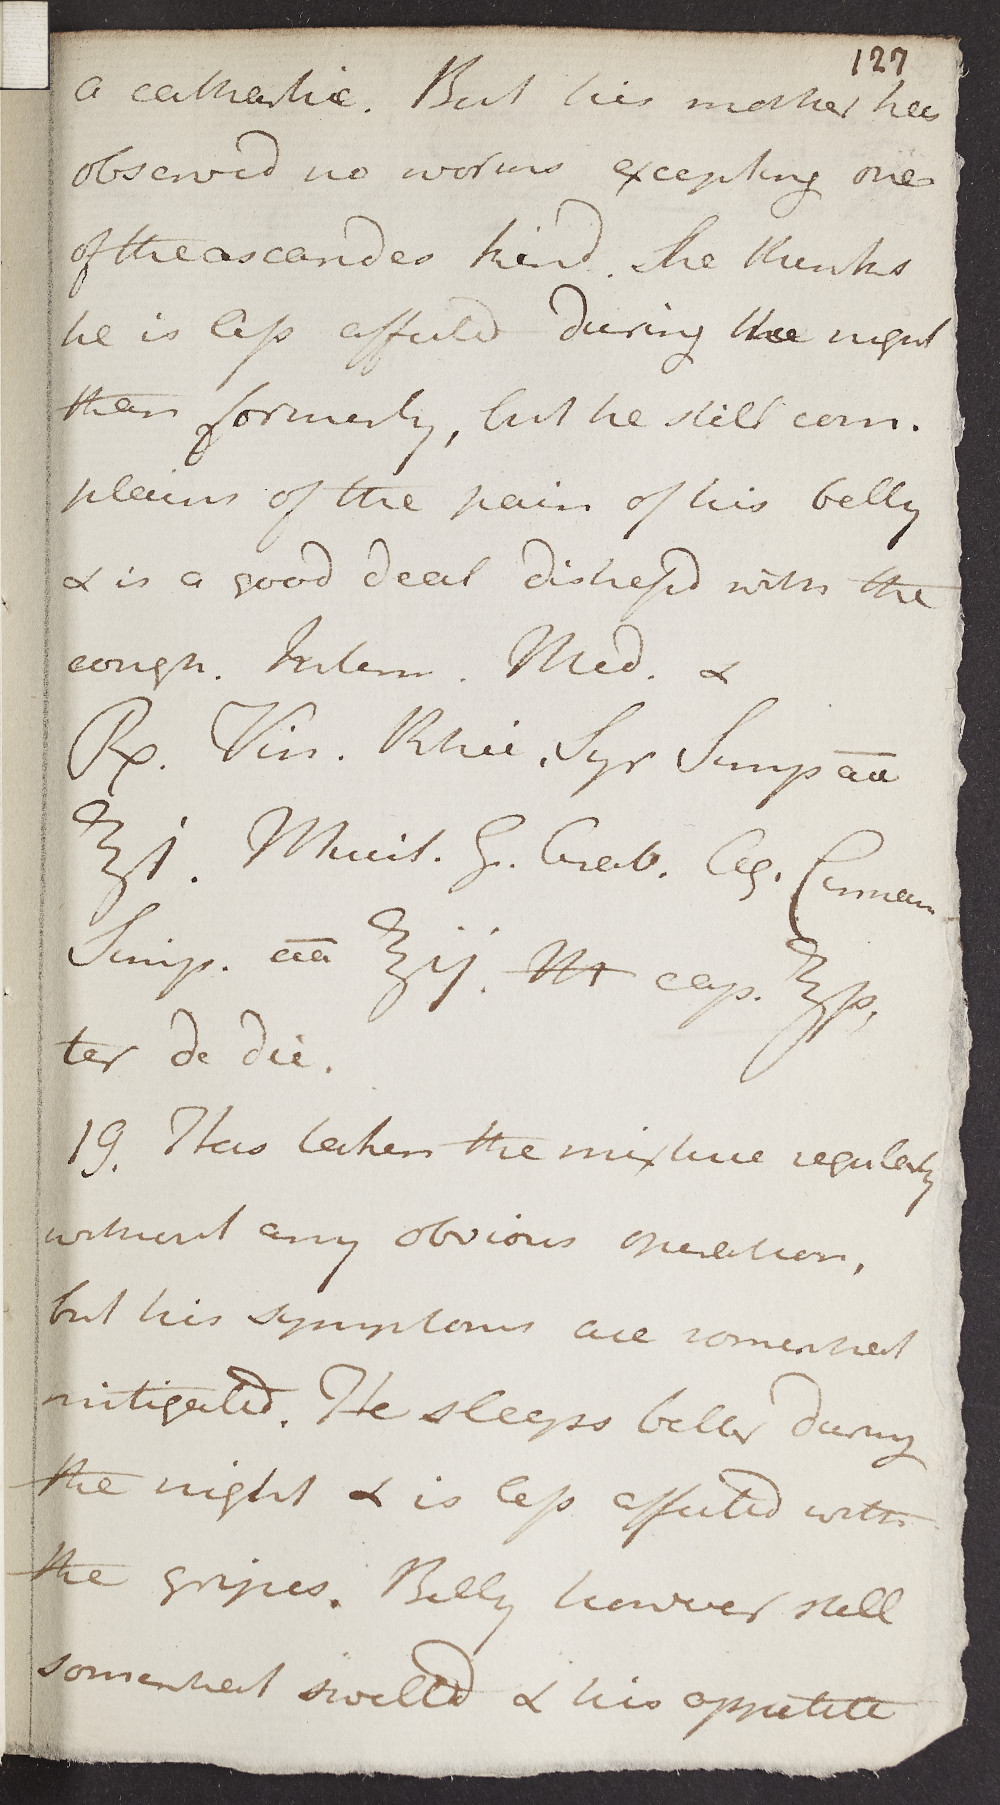 127
a cathartic. But his mother has
observed no worms excepting one
of the ascarides kind. She thinks
he is less affected during the night
than formerly, but he still com-
plains of the pain of his belly
& is a good deal distressd with the
cough. Interm. Med. &
Rx. Vin. Rhei, Syr Simp āā
℥j. Mucil. G. Arab. Aq. Cinnam
Simp. āā ℥ij. M cap. ℥ß,
ter de die.
19. Has taken the mixture regularly
without any obvious operation,
but his symptoms are somewhat
mitigated. He sleeps better during
the night & is less affected with
the gripes. Belly however still
somewhat swelled & his appetite